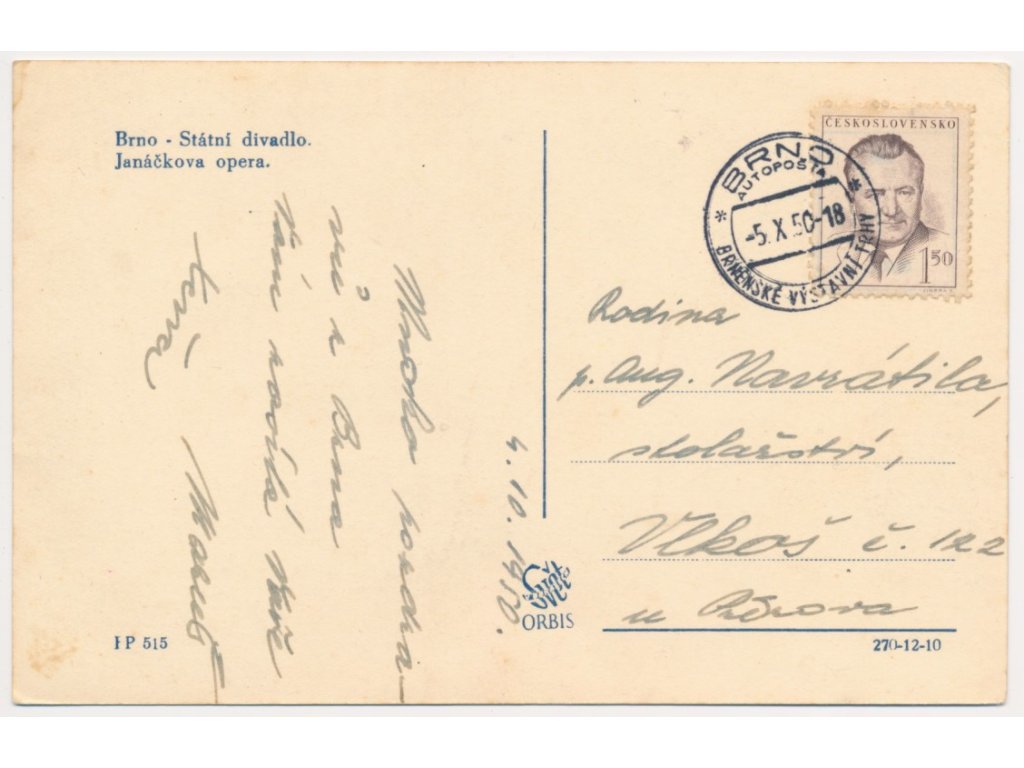 Brno - Státní divadlo.
Janáčkova opera.
ČESKOSLOVENSKO
1 50
BRNO
AUTOPOŠTA
-5.X.50-18
BRNĚNSKÉ VÝSTAVNÍ TRHY
4. 10. 1950.
Mnoho pozdra-
vů z Brna
Vám zasílá Vaše
Mařena
Rodina
p. Aug. Navrátila,
stolařství,
Vlkoš č. 122
u Přerova
Svět
ORBIS
FP 515
270-12-10